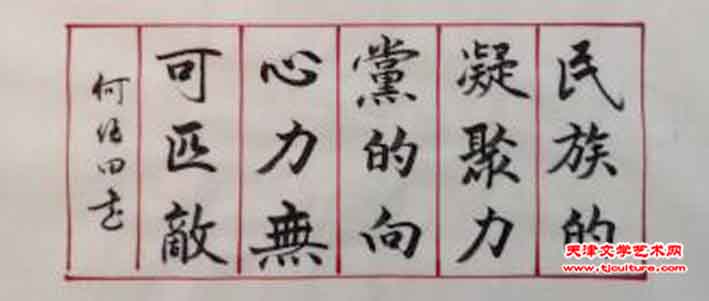 民族的
凝聚力
黨的向
心力無
可匹敵
何伍田书
天津文学艺术网
www.tjculture.com